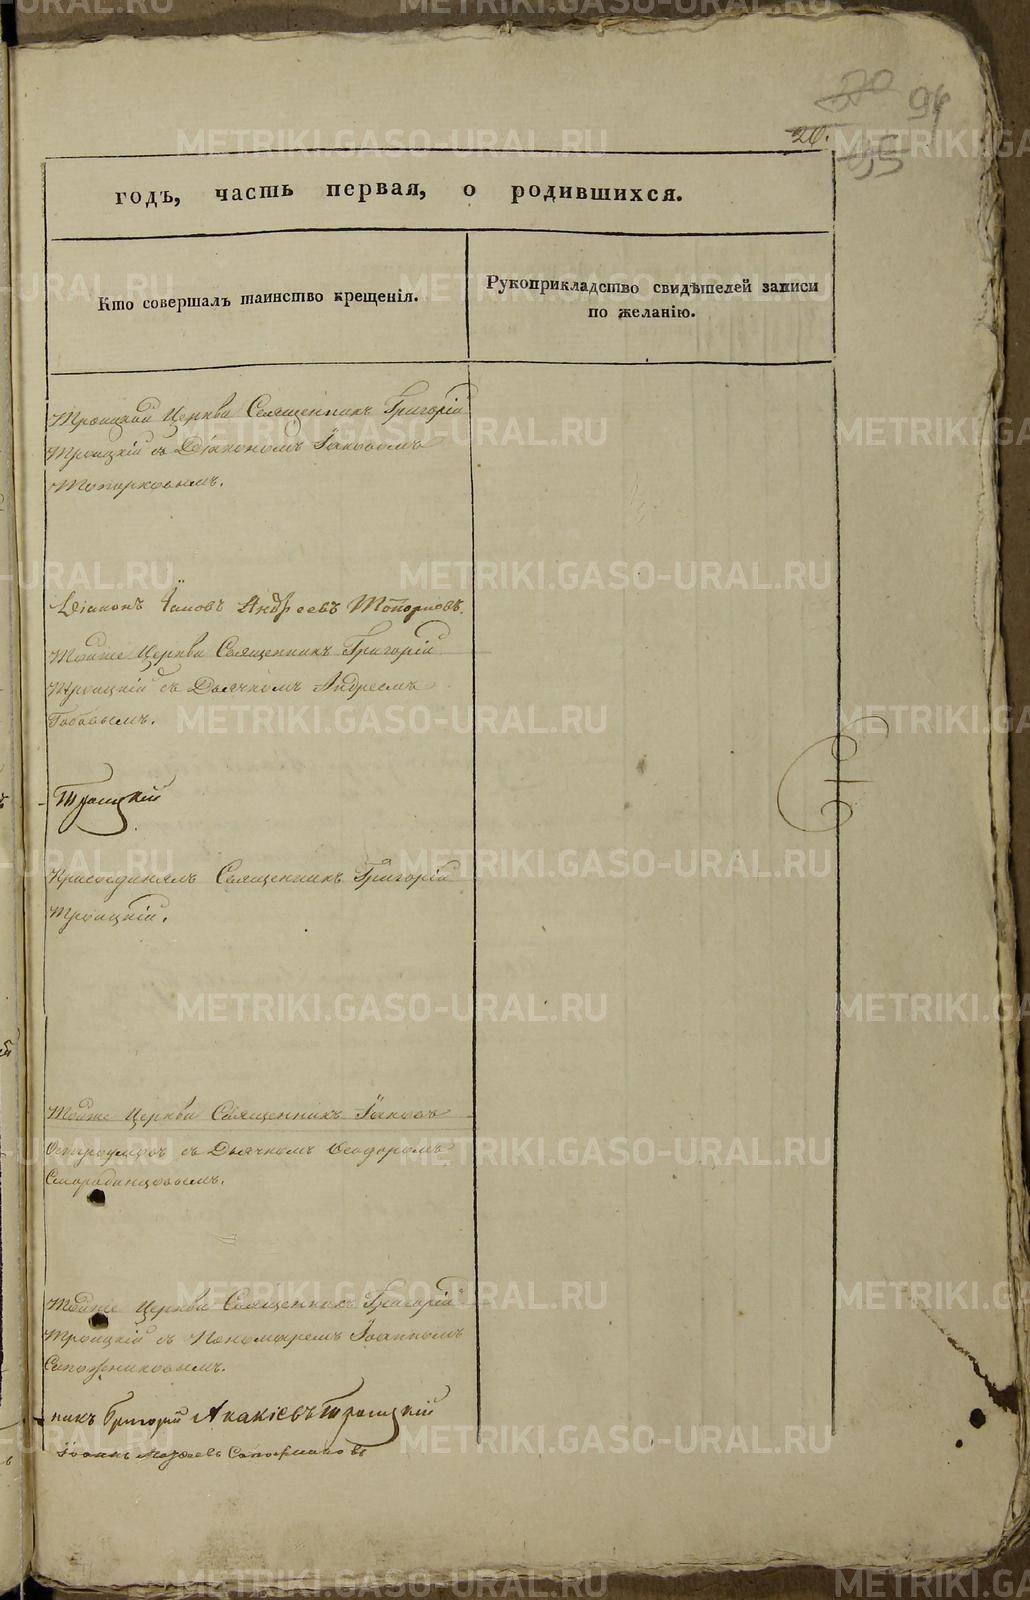 94
20.
годъ, часть первая, о родившихся.
Кто совершалъ таинство крещенія.
Рукоприкладство свидѣтелей записи
по желанію.
Троицкой Церкви Священникъ Григорій
Троицкій съ Діакономъ Іаковомъ
Топорковымъ.
Діаконъ Іаковъ Андреевъ Топорковъ.
Тойже Церкви Священникъ Григорій
Троицкій съ Дьячкомъ Андреемъ
Троицкій
Присоединялъ Священникъ Григорій
Троицкій.
Тойже Церкви Священникъ Іаковъ
Остроумовъ съ Дьячкомъ Ѳеодоромъ
Тойже Церкви Священникъ Григорій
Троицкій съ Пономаремъ Іоанномъ
Сапожниковымъ.
никъ Григорій Акакіевъ Троицкій
Іоаннъ Сапожниковъ
METRIKI.GASO-URAL.RU